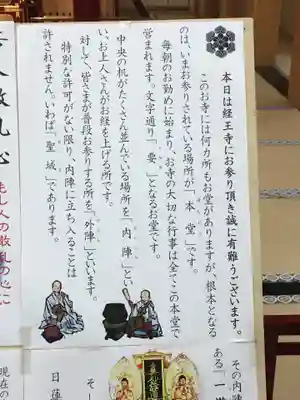 本日は経王寺にお参り頂き誠に有難うございます。
このお寺には何カ所もお堂がありますが、根本となる
のは、いまお参りされている場所が「本堂」です。
毎朝のお勤めに始まり、お寺の大切な行事は全てこの本堂で
営まれます。文字通り、「要」となるお堂です。
中央の机がたくさん並んでいる場所を「内陣」とい
い、お上人さんがお経を上げる所です。
対して、皆さまが普段お参りする所を「外陣」といいます。
特別な許可がない限り、内陣に立ち入ることは
許されません。いわば「聖域」であります。
もし人の散乱の心に
その内陣
ある「一
現在の
日蓮